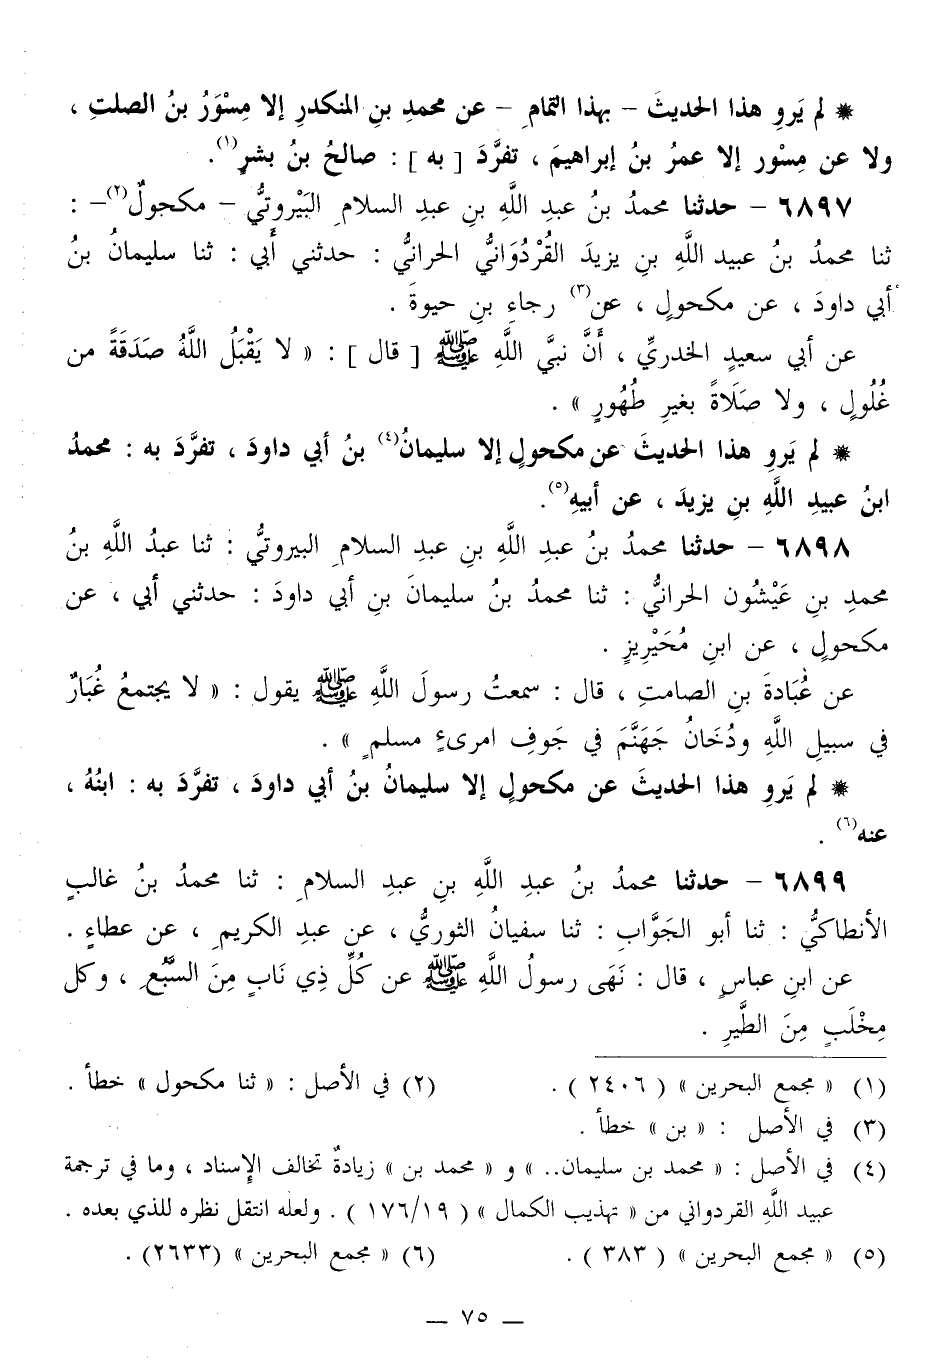 * لم يَروِ هذا الحديثَ – بهذا التمامِ – عن محمدِ بنِ المنكدرِ إلا مِسْوَرُ بنُ الصلتِ ،
ولا عن مِسْور إلا عمرُ بنُ إبراهيمَ ، تفرَّدَ [ به ] : صالحُ بنُ بشرٍ(١).
٦٨٩٧ – حدثنا محمدُ بنُ عبدِ اللَّهِ بنِ عبدِ السلامِ البَيْروتيُّ – مكحولٌ(٢)– :
ثنا محمدُ بنُ عبيد اللَّهِ بنِ يزيدَ القُرْدُوَانيُّ الحرانيُّ : حدثني أَبي : ثنا سليمانُ بنُ
أبي داودَ ، عن مكحولٍ ، عن(٣) رجاءِ بنِ حيوةَ .
عن أبي سعيدٍ الخدريِّ ، أَنَّ نبيَّ اللَّهِ ﷺ [ قال ] : « لا يَقْبَلُ اللَّهُ صَدَقَةً من
غُلُولٍ ، ولا صَلَاةً بغيرِ طُهُورٍ » .
* لم يَروِ هذا الحديثَ عن مكحولٍ إلا سليمانُ(٤) بنُ أبي داودَ ، تفرَّدَ به : محمدُ
ابنُ عبيدِ اللَّهِ بنِ يزيدَ ، عن أبيهِ(٥).
٦٨٩٨ – حدثنا محمدُ بنُ عبدِ اللَّهِ بنِ عبدِ السلامِ البيروتيُّ : ثنا عبدُ اللَّهِ بنُ
محمدِ بنِ عَيْشُون الحرانيُّ : ثنا محمدُ بنُ سليمانَ بنِ أبي داودَ : حدثني أبي ، عن
مكحولٍ ، عن ابنِ مُحَيْرِيزٍ .
عن عُبَادةَ بنِ الصامتِ ، قال : سمعتُ رسولَ اللَّهِ ﷺ يقول : « لا يجتمعُ غُبَارٌ
في سبيلِ اللَّهِ ودُخَانُ جَهَنَّمَ في جَوفِ امرىءٍ مسلمٍ » .
* لم يَروِ هذا الحديثَ عن مكحولٍ إلا سليمانُ بنُ أبي داودَ ، تفرَّدَ به : ابنُهُ ،
عنه(٦) .
٦٨٩٩ – حدثنا محمدُ بنُ عبدِ اللَّهِ بنِ عبدِ السلامِ : ثنا محمدُ بنُ غالبٍ
الأنطاكيُّ : ثنا أبو الجَوَّابِ : ثنا سفيانُ الثوريُّ ، عن عبدِ الكريمِ ، عن عطاءٍ .
عن ابنِ عباسٍ ، قال : نَهَى رسولُ اللَّهِ ﷺ عن كُلِّ ذِي نَابٍ مِنَ السَّبُعِ ، وكل
مِخْلَبٍ مِنَ الطَّيرِ .
(١) « مجمع البحرين » ( ٢٤٠٦ ) . (٢) في الأصل : « ثنا مكحول » خطأ .
(٣) في الأصل : « بن » خطأ .
(٤) في الأصل : « محمد بن سليمان.. » و « محمد بن » زيادةٌ تخالف الإسناد ، وما في ترجمة
عبيد اللَّه القردواني من « تهذيب الكمال » ( ١٧٦/١٩ ) . ولعله انتقل نظره للذي بعده .
(٥) « مجمع البحرين » ( ٣٨٣ ) . (٦) « مجمع البحرين » (٢٦٣٣) .
— ٧٥ —